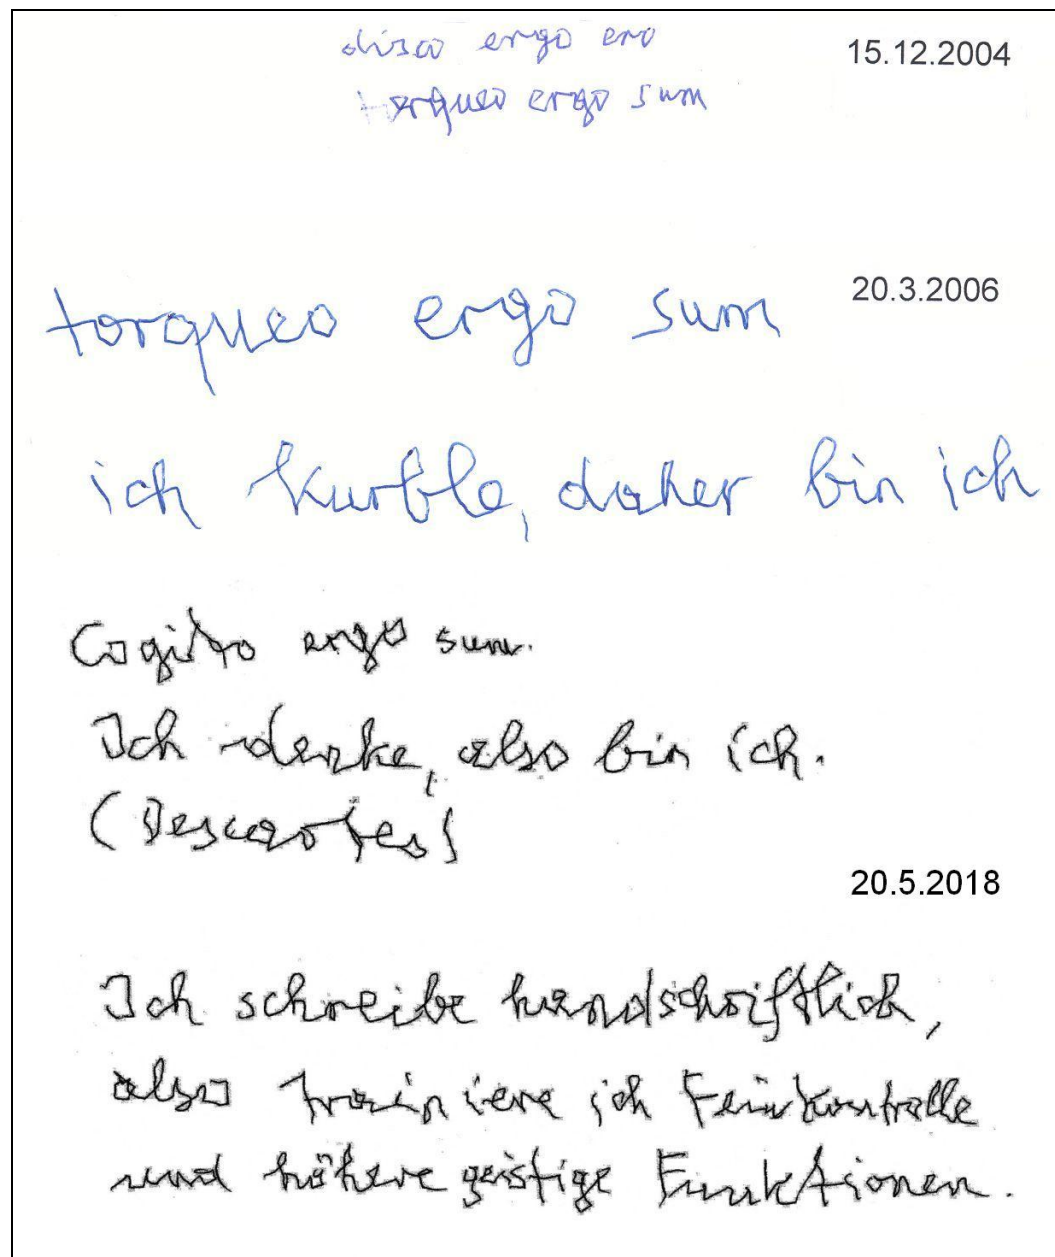 disco ergo ero 15.12.2004
torqueo ergo sum
torqueo ergo sum 20.3.2006
ich kurble, daher bin ich
Cogito ergo sum.
Ich denke, also bin ich.
(Descartes)
20.5.2018
Ich schreibe handschriftlich,
also trainiere ich Feinkontrolle
und höhere geistige Funktionen.